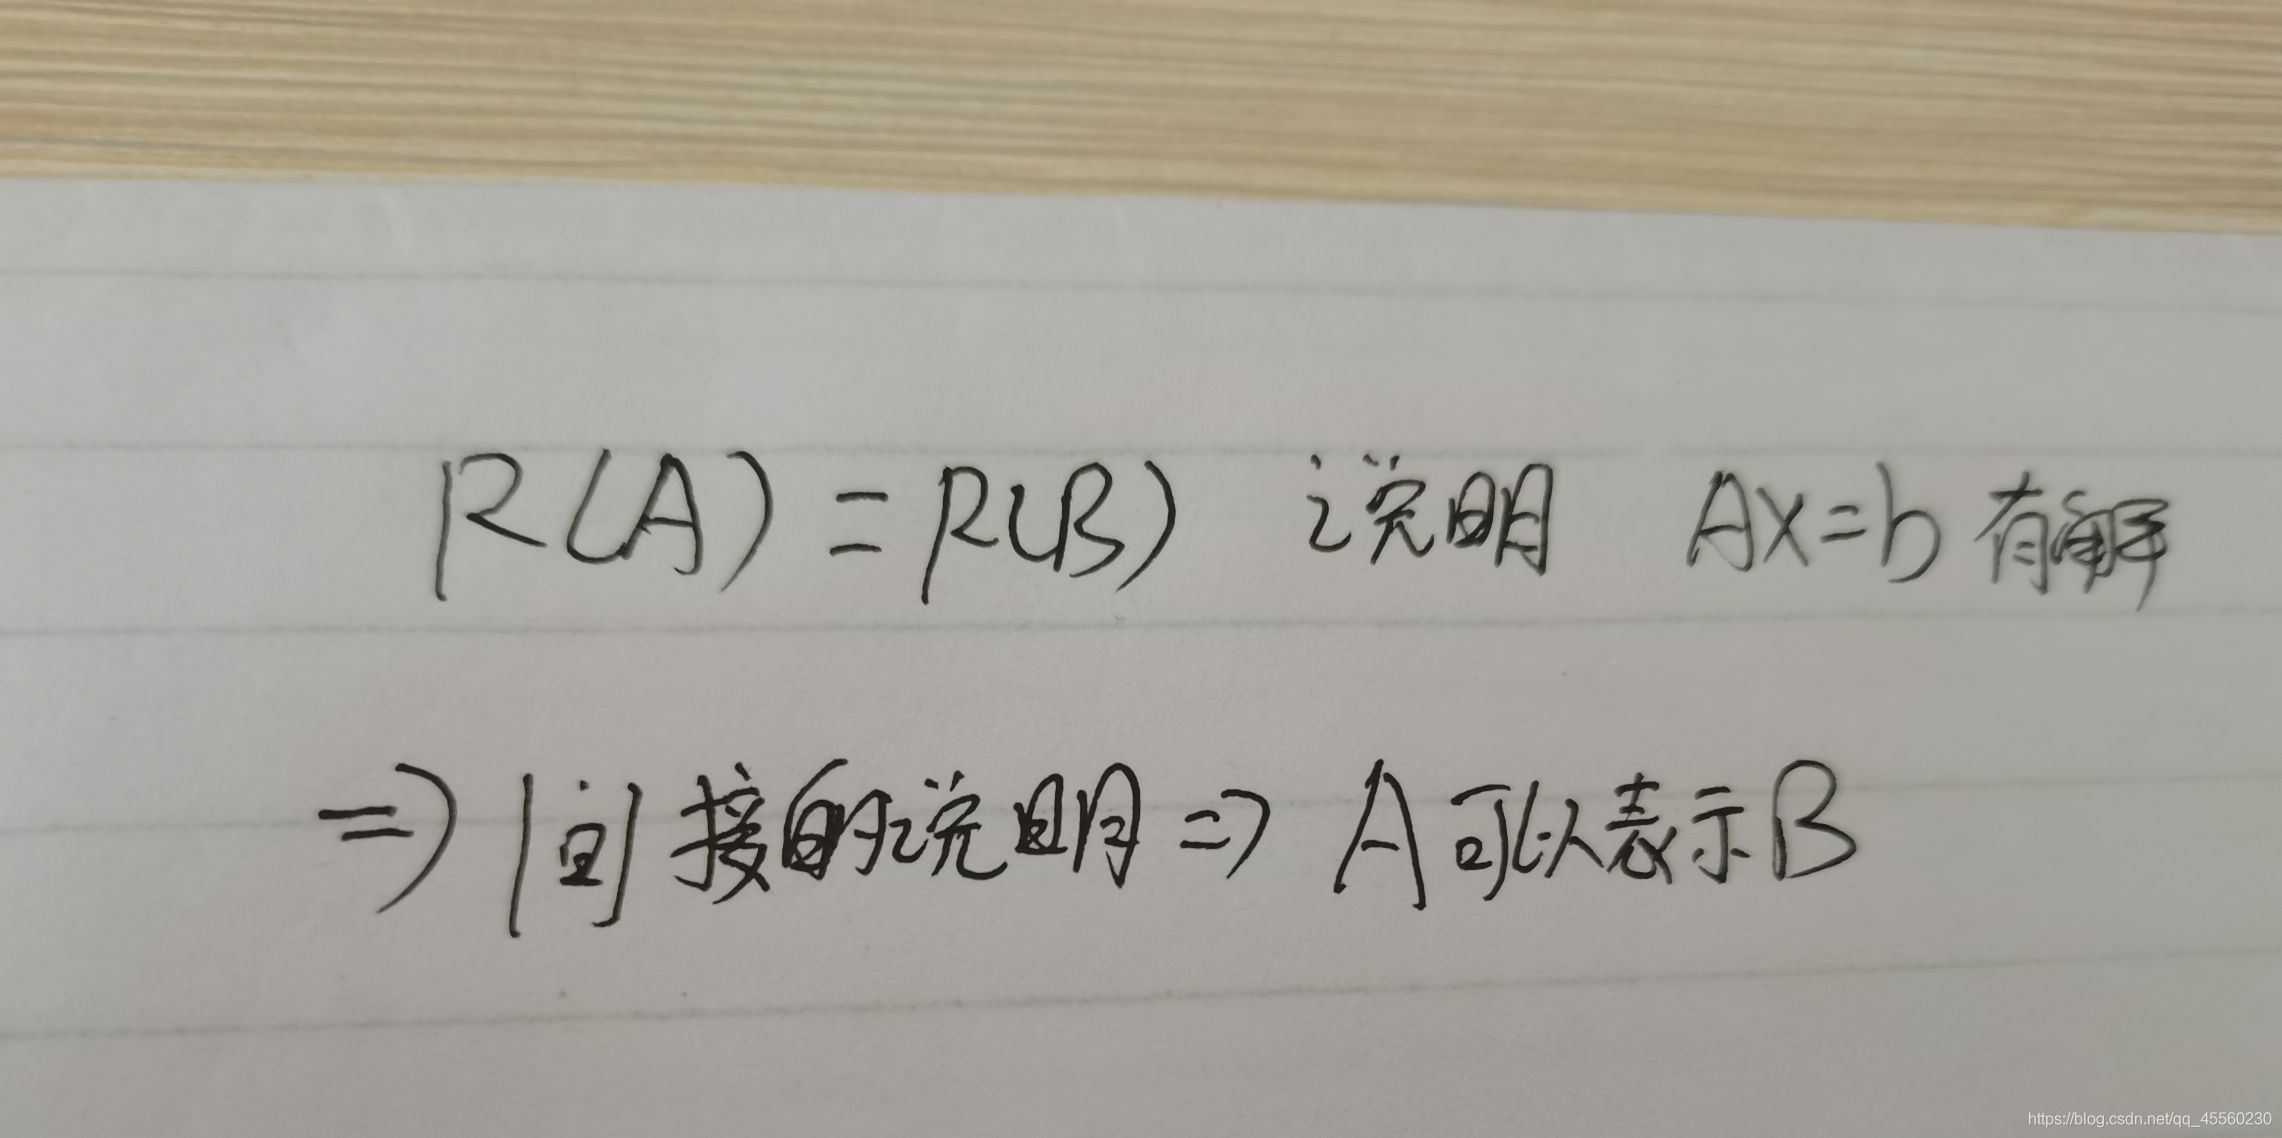 R(A) = R(B) 说明 AX=b 有解
=> 间接的说明 => A可以表示B
https://blog.csdn.net/qq_45560230